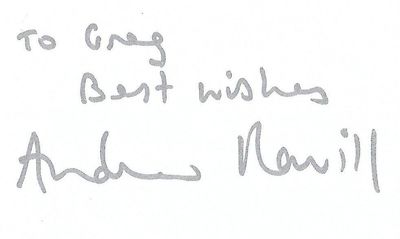 To Greg
Best wishes
Andrew